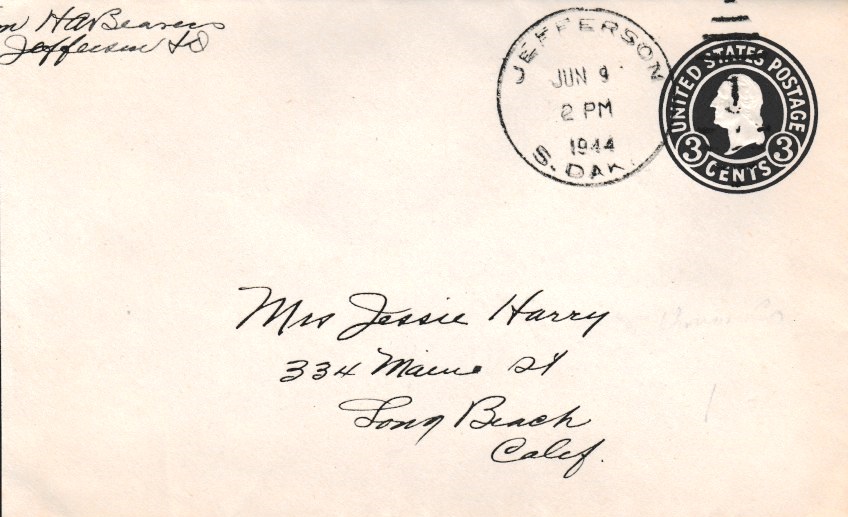 H A Beavers
Jefferson S D
JEFFERSON
JUN 9
2 PM
1944
S. DAK.
UNITED STATES POSTAGE
3 CENTS 3
Mrs Jessie Harry
334 Maine St
Long Beach
Calif.